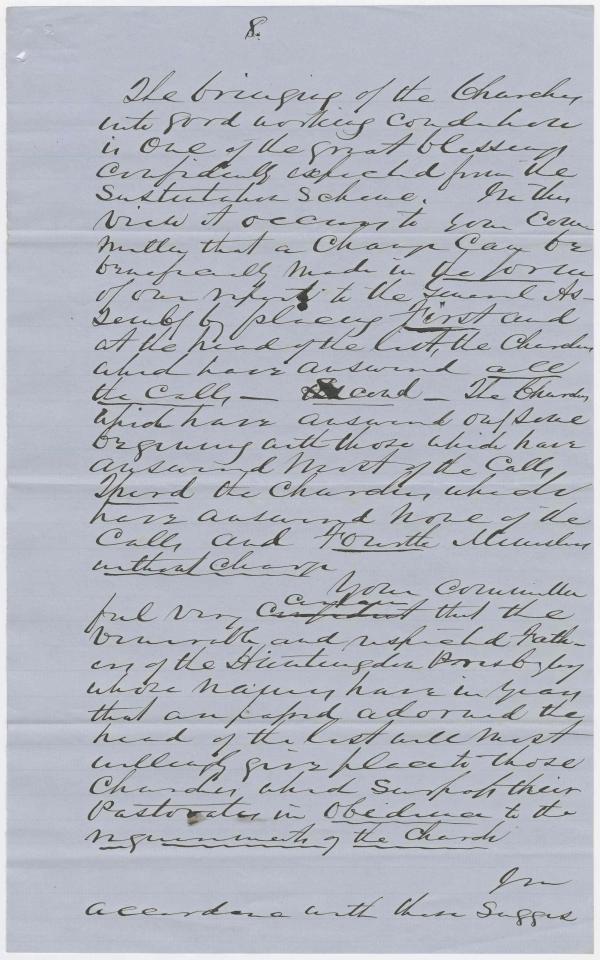 8.
The bringing of the Churches
into good working condition
is One of the great blessings
confidently expected from the
Sustentation Scheme. In this
view it occurs to your Com
mittee that a Change Can be
beneficially made in the form
of our report to the General As-
sembly by placing First and
at the head of the list, the Churches
which have answered all
the Calls — Second — The Churches
which have answered only some
beginning with those which have
answered Most of the Calls
Third the Churches which
have answered None of the
Calls and Fourth Ministers
without charge
Your Committee
feel very certain confident that the
Venerable and respected Fath-
ers of the Huntingdon Presbytery
whose names have in years
that are past adorned the
head of the list will most
willingly give place to those
Churches which Surpass their
Pastorates in Obedience to the
requirements of the Church
In
accordance with these Sugges